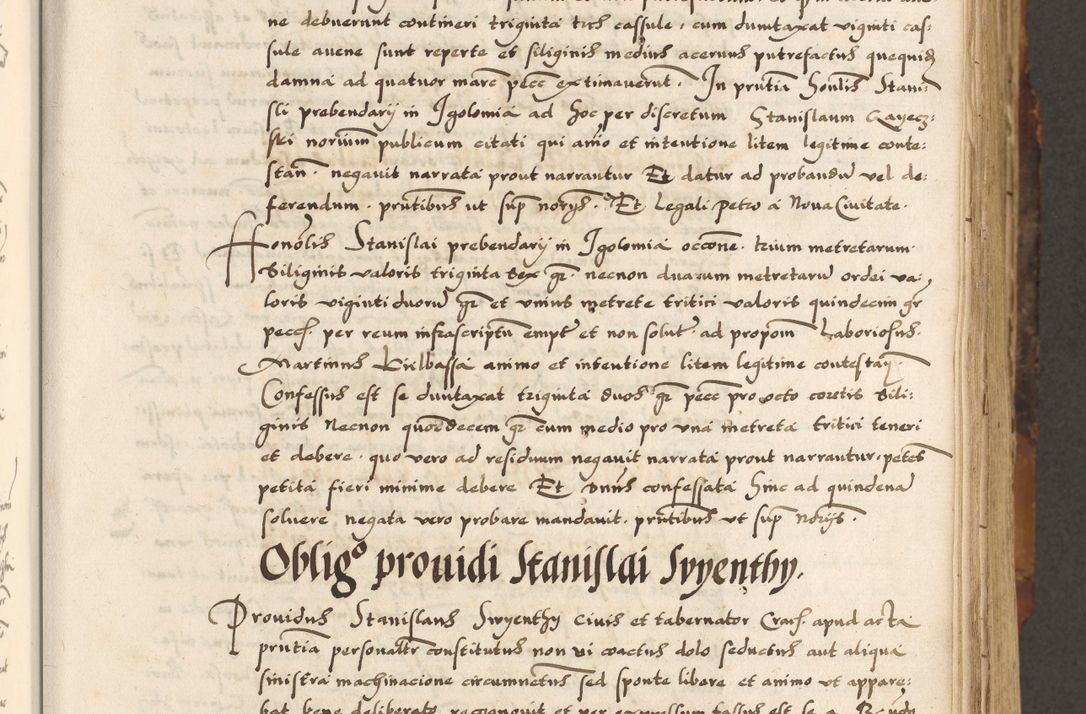 ne debuerunt contineri triginta tres cassule, cum duntaxat viginti cas:
sule avene sunt reperte et siliginis medius acervus putrefactus quequidē
damna ad quatuor marc pecc extimaverūt. In prntia Honlis Stani:
sli prebendarij in Igolomia ad hoc per discretum Stanislaum Gayecz:
ski norium publicum citati qui animo et intentione litem legitime conte:
stan. negavit narrata prout narrantur Et datur ad probandū vel de:
ferendum. prntibus ut supr norijs. Et Legali Petro a Nova Civitate.
Honōlis Stanislai prebendarij in Igolomia occone. trium metretarum
Siliginis valoris triginta sex gr. necnon duarum metretarū ordei va:
loris viginti duorū gr et unius metrete tritici valoris quindecim gr
pecc. per reum infrascriptū empt et non solut ad propom Laboriosus.
Martinus Kielbassa animo et intentione litem legitime contestan
Confessus est se duntaxat triginta duos gr pecc pro octo coretis sili:
ginis Necnon quordecem gr cum medio pro una metreta tritici teneri
et debere. quo vero ad residuum negavit narrata prout narrantur, petens
petita fieri minime debere Et Dnus confessata hinc ad quindena
solvere, negata vero probare mandavit. prntibus ut supr Norijs.
Obligo providi Stanislai Svyenthy.
Providus Stanislaus Swyenthy civis et tabernator Crac. apud acta
prntia personalitr constitutus non vi coactus dolo seductus aut aliqua
sinistra machinacione circumventus sed sponte libere et animo ut appare:
bat bene deliberato recognovit et per expressum fassus est se a Rendo